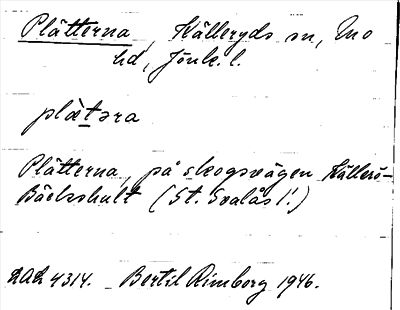 Plätterna, Källeryds sn, Mo
hd, Jönk. l.
plætəra
Plätterna, på skogsvägen Källerö-
Bäckshult (St. Svalås l.!)
DAL 4314. Bertil Rimborg 1946.